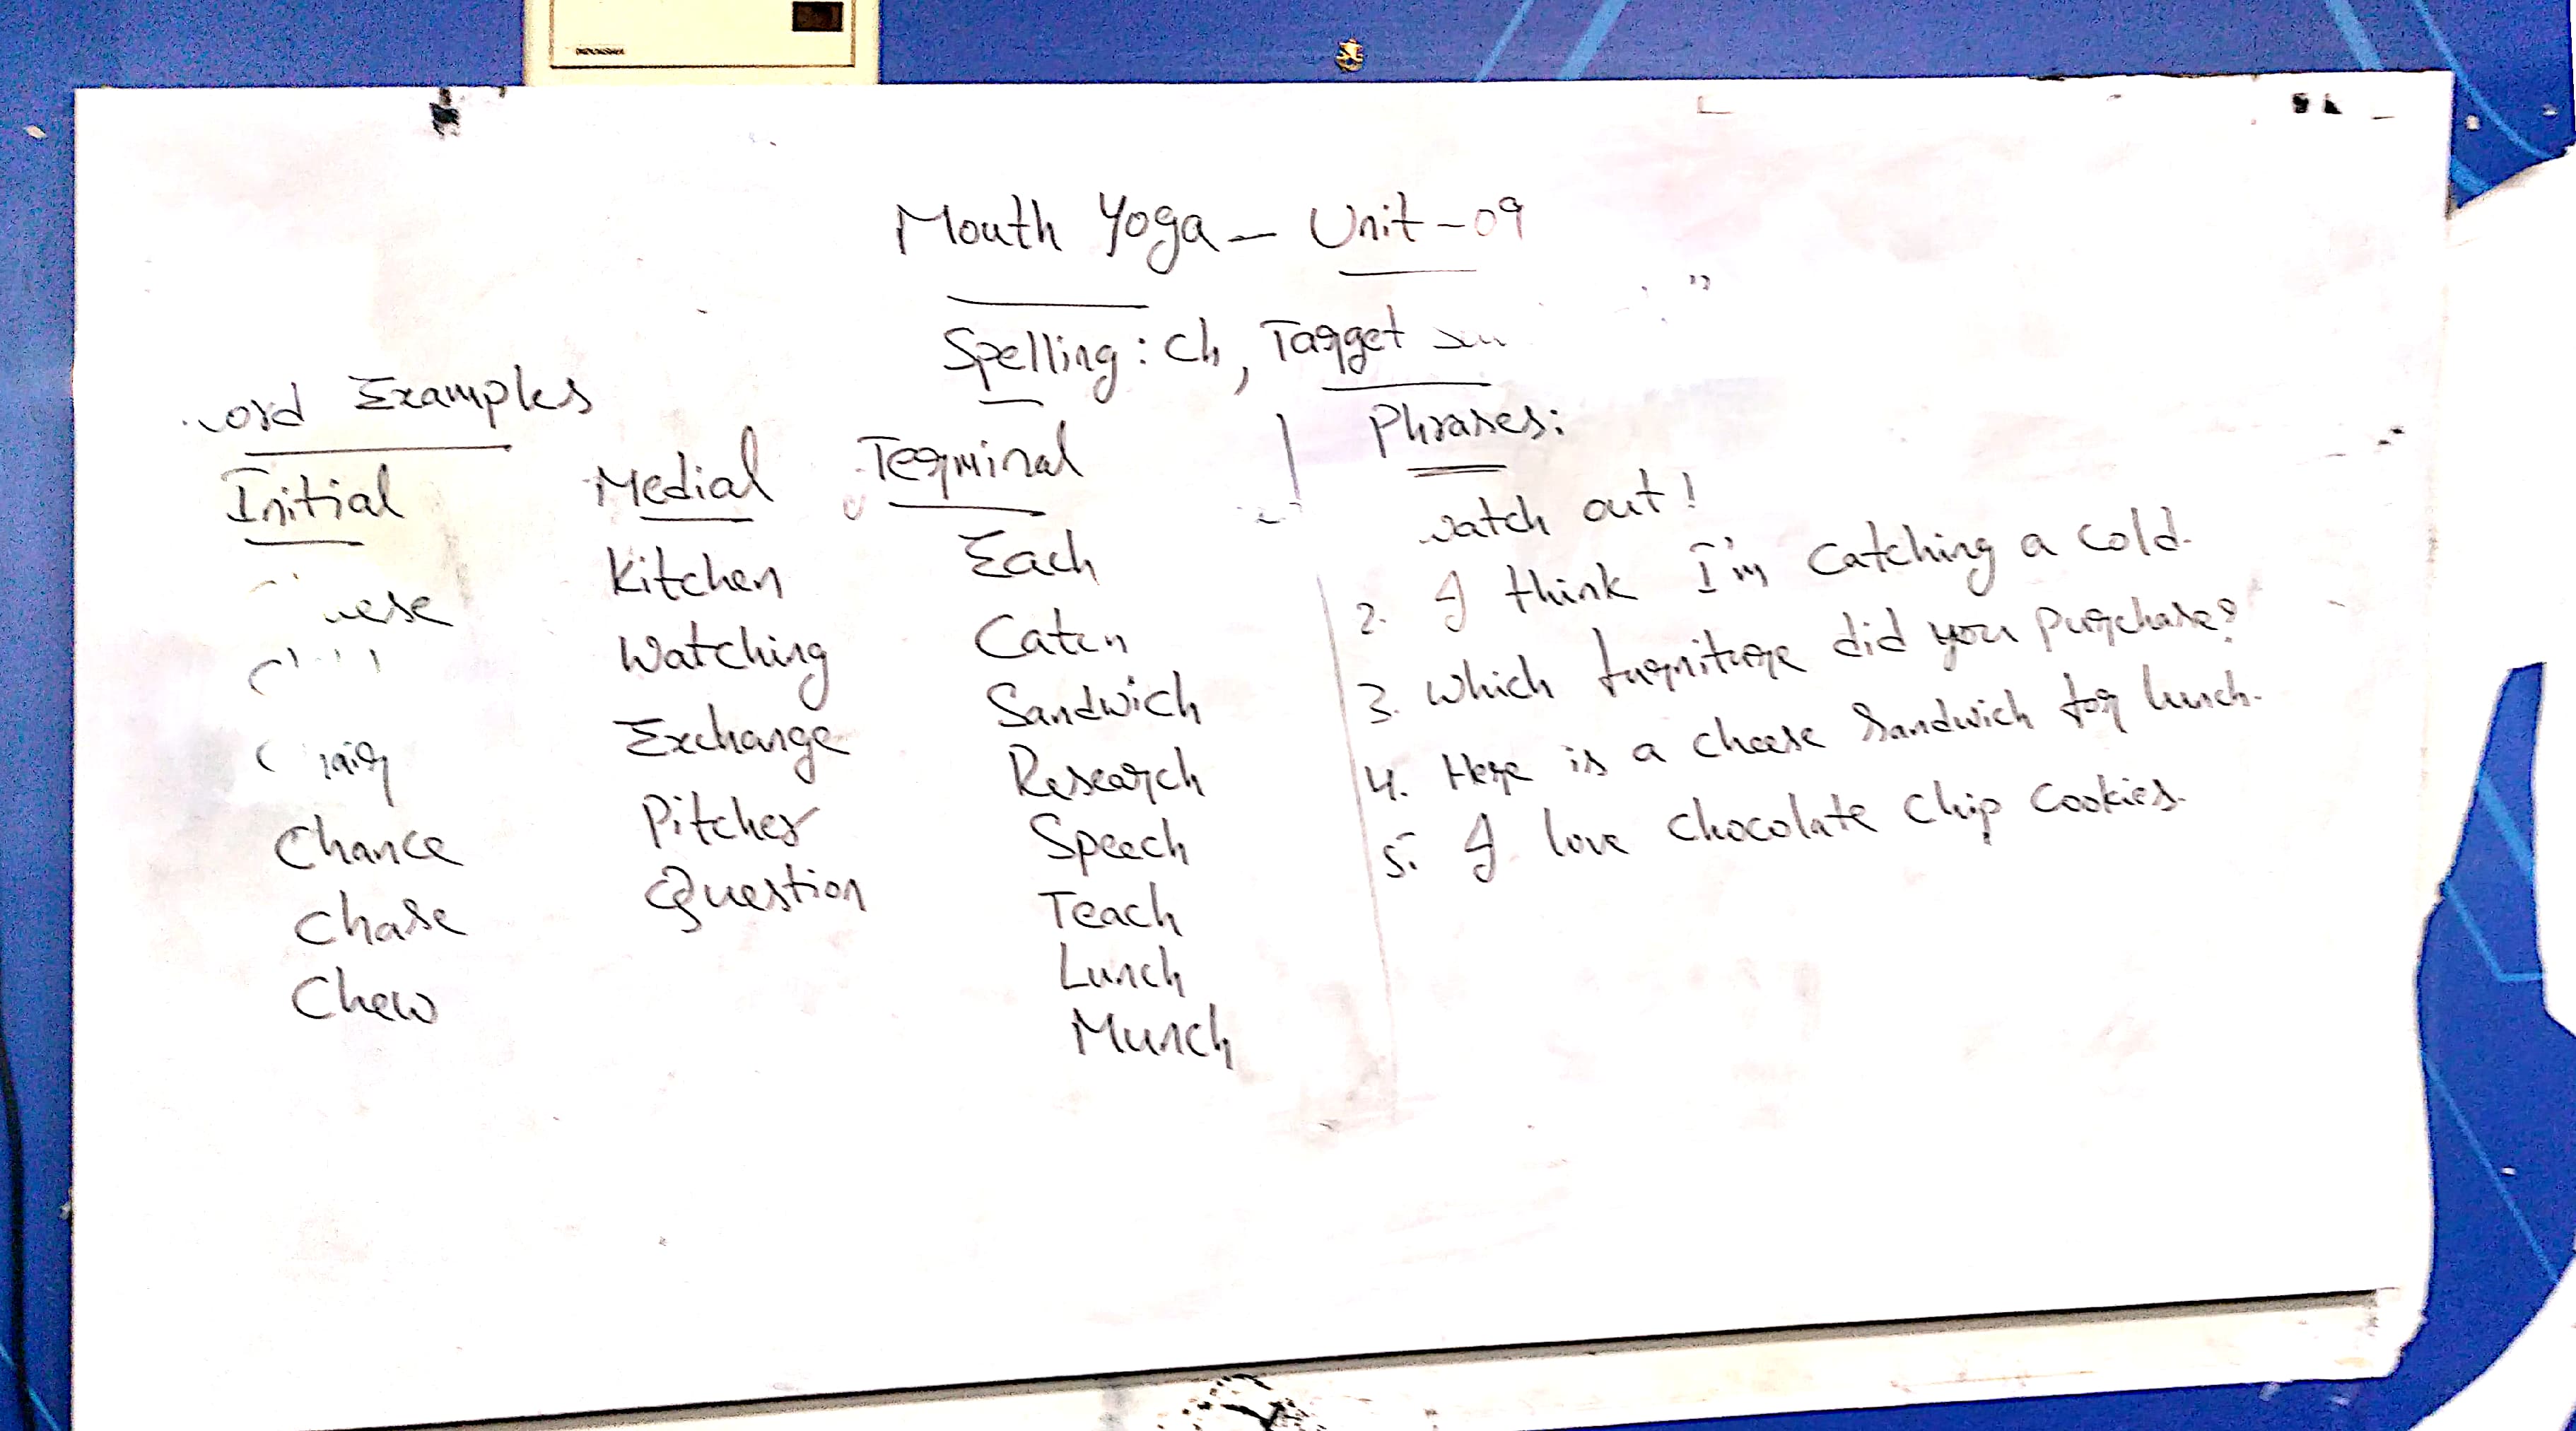 Mouth Yoga - Unit - 09
Spelling: Ch, Target
Word Examples
Initial
Chance
Chase
Chew
Medial
Kitchen
Watching
Exchange
Pitcher
Question
Terminal
Each
Catch
Sandwich
Research
Speech
Teach
Lunch
Munch
Phrases:
watch out!
2. I think I'm catching a cold.
3. Which furniture did you purchase?
4. Here is a cheese sandwich for lunch.
5. I love chocolate chip cookies.